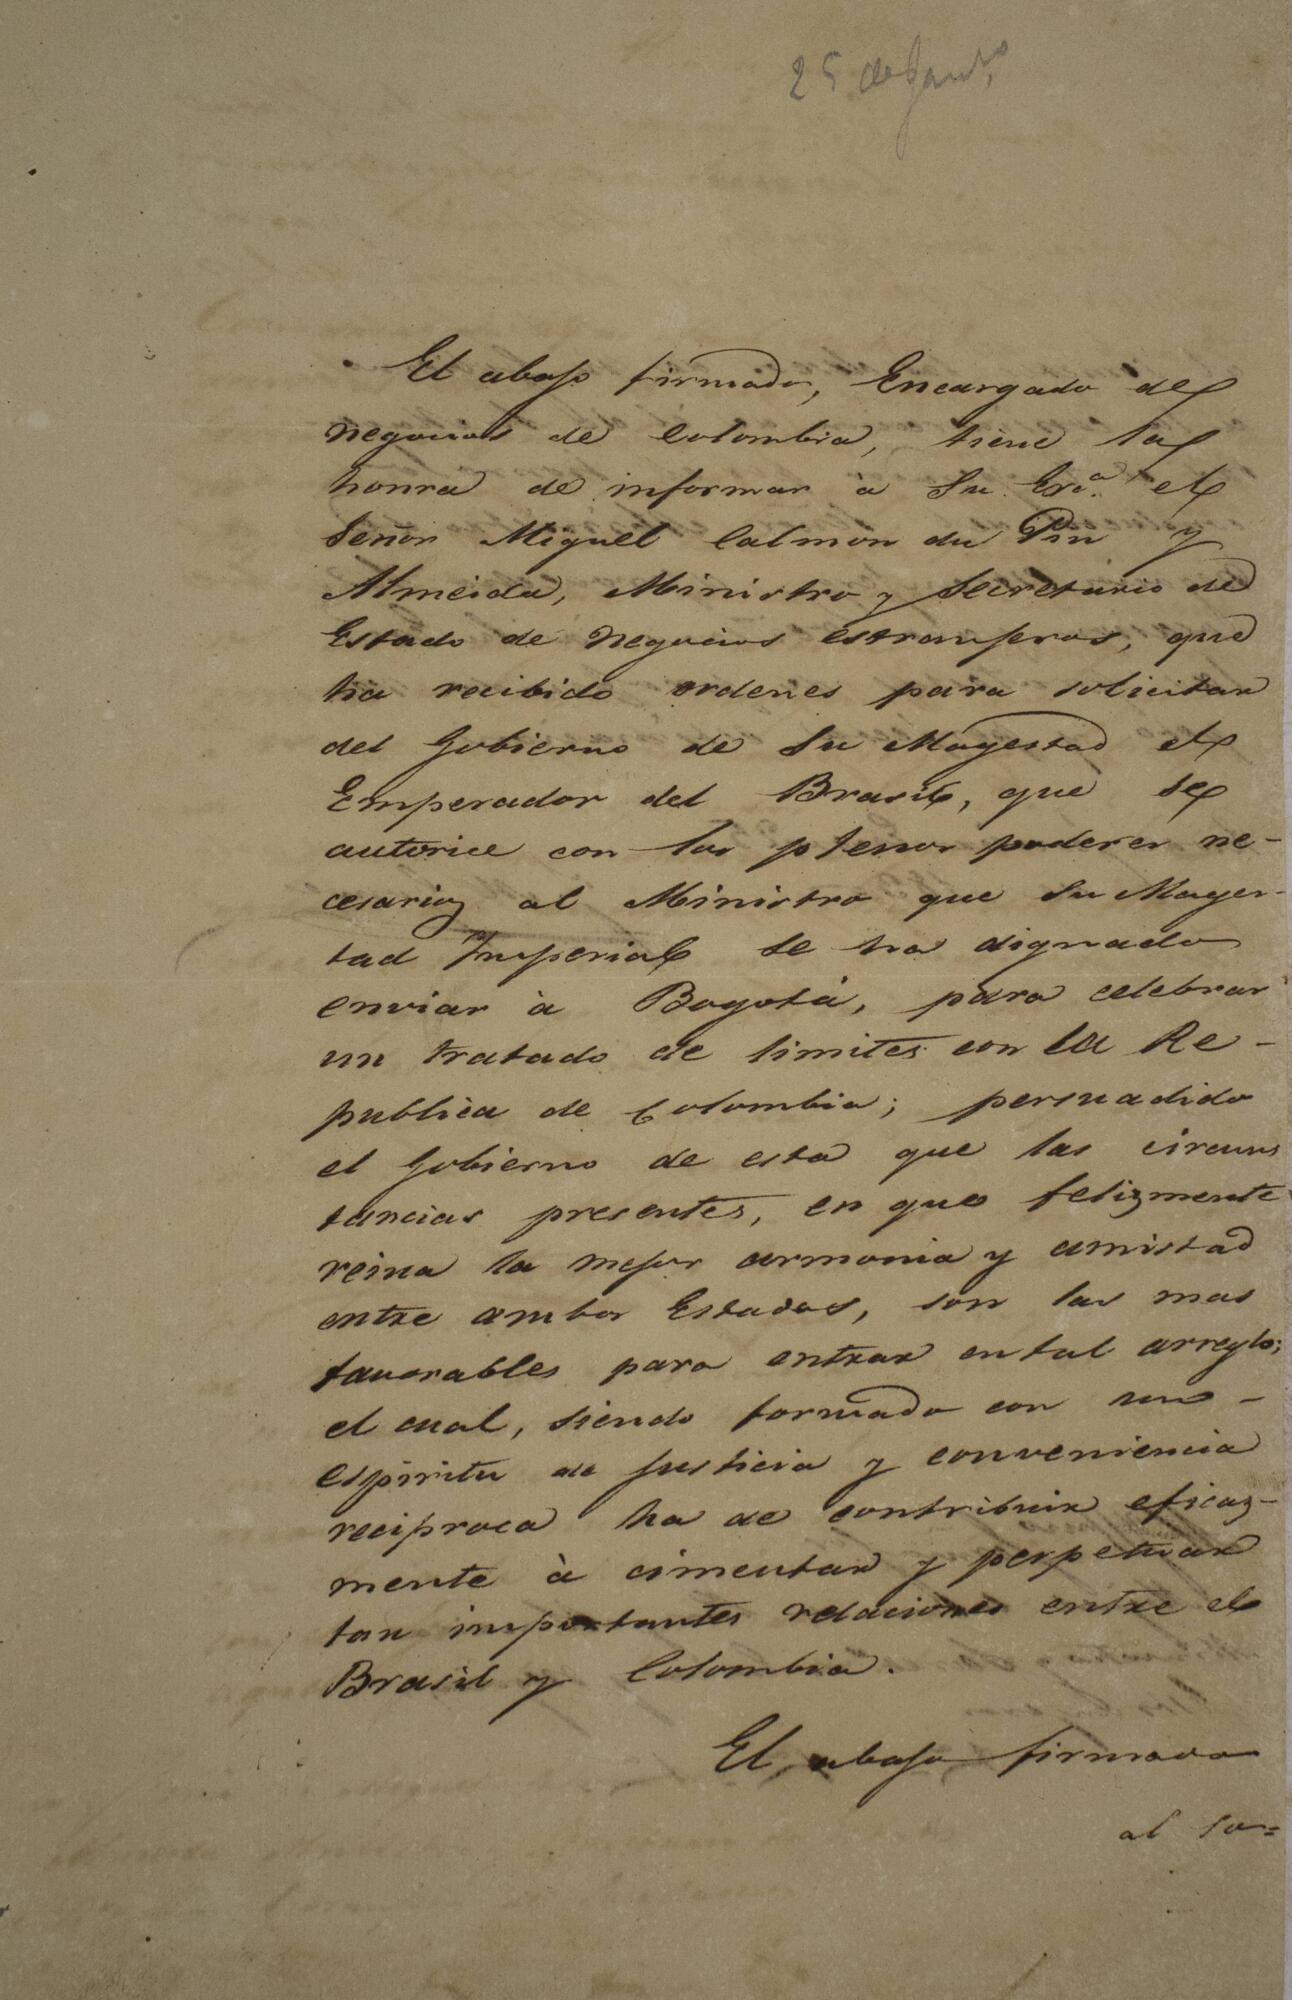 25 de Janro
El abajo firmado, Encargado de
negocios de Colombia, tiene la
honra de informar à Su Exca. el
Señor Miguel Calmon du Pin y
Almeida, Ministro y Secretario de
Estado de negocios estranjeros, que
ha recibido ordenes para solicitar
del Gobierno de Su Magestad el
Emperador del Brasil, que se
autorice con los plenos poderes ne-
cesarios al Ministro que Su Mages-
tad Imperial se ha dignado
enviar à Bogotá, para celebrar
un tratado de limites con la Re-
publica de Colombia; persuadido
el Gobierno de esta que las circuns
tancias presentes, en que felizmente
reina la mejor armonia y amistad
entre ambos Estados, son las mas
favorables para entrar en tal arreglo;
el cual, siendo formado con un -
espiritu de justicia y conveniencia
reciproca ha de contribuir eficaz-
mente à cimentar y perpetuar
tan importantes relaciones entre el
Brasil y Colombia.
El abajo firmado
al sa=